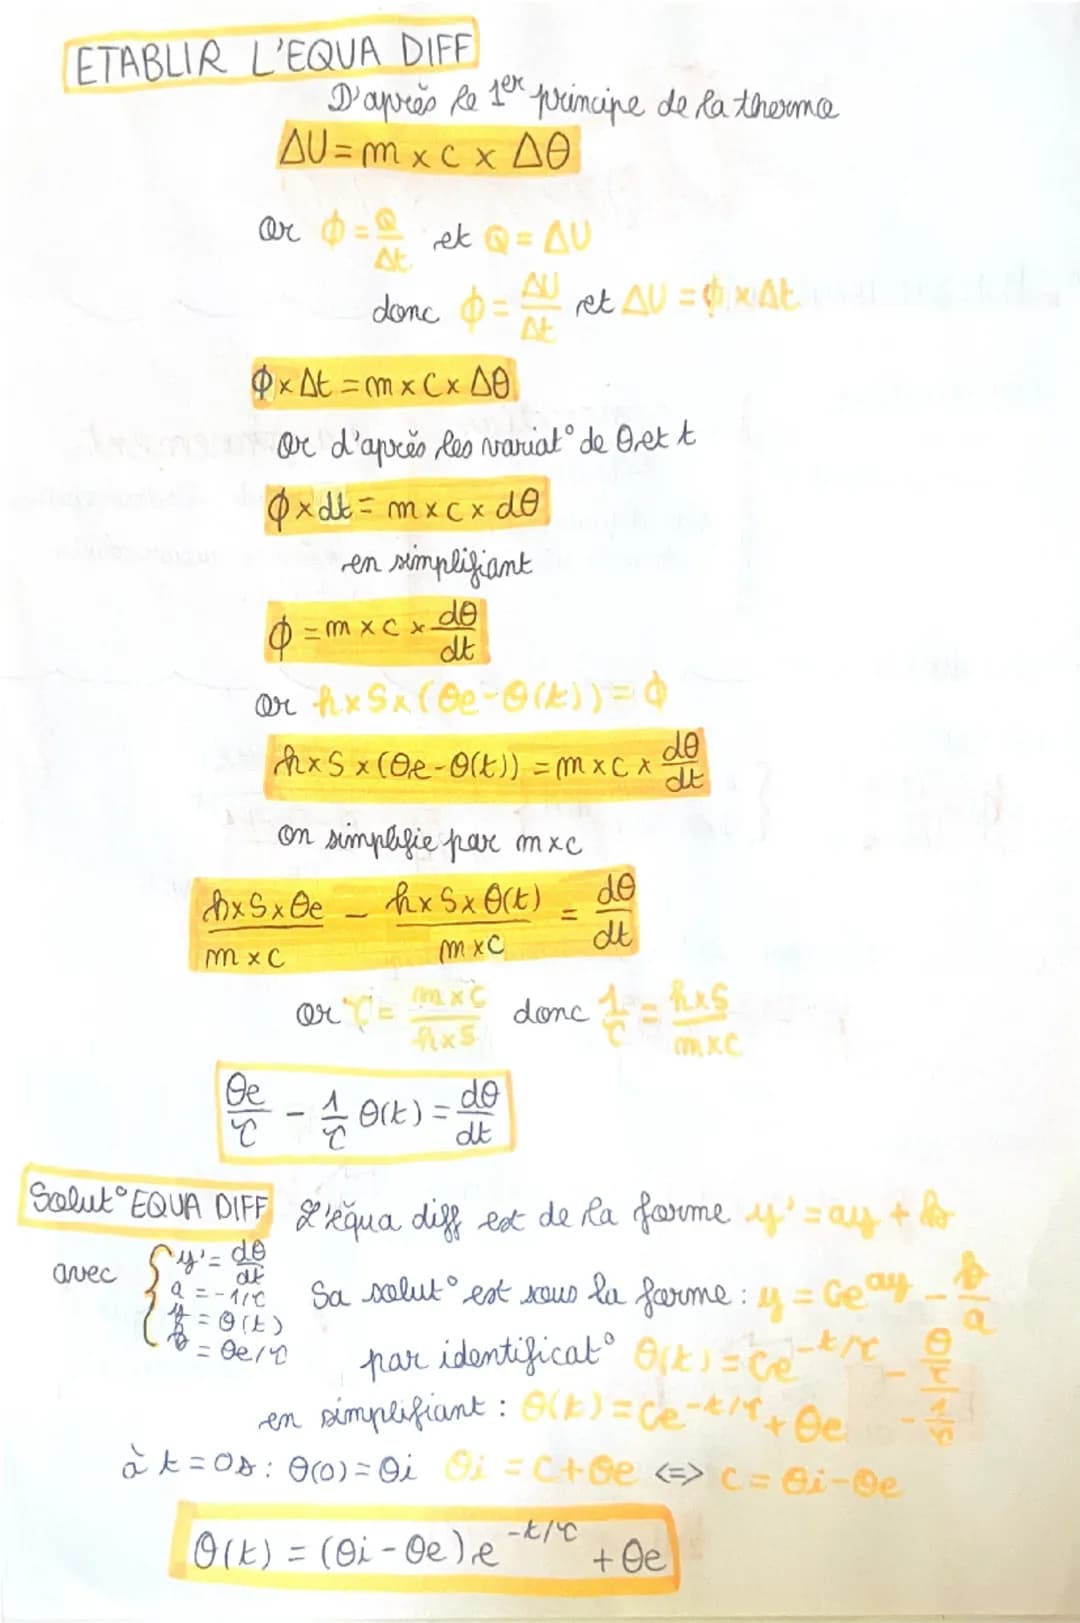 ETABLIR L'EQUA DIFF
D'après le 1er principe de la thermo
ΔU = m × c × Δθ
or ϕ = Q/Δt et Q = ΔU
donc ϕ = ΔU/Δt et ΔU = ϕ × Δt
ϕ × Δt = m × c × Δθ
Or d'après les variat° de θ et t
ϕ × dt = m × c × dθ
en simplifiant
ϕ = m × c × dθ/dt
or h × S × (θe - θ(t)) = ϕ
h × S × (θe - θ(t)) = m × c × dθ/dt
on simplifie par m × c
h × S × θe / m × c - h × S × θ(t) / m × c = dθ/dt
or τ = m × c / h × S donc 1/τ = h × S / m × c
θe/τ - 1/τ θ(t) = dθ/dt
Solut° EQUA DIFF L'équa diff est de la forme y' = ay + b
avec { y' = dθ/dt
a = -1/τ
y = θ(t)
b = θe/τ
Sa solut° est sous la forme : y = Ce^ay - b/a
par identificat° θ(t) = Ce^-t/τ - θ/τ / -1/τ
en simplifiant : θ(t) = Ce^-t/τ + θe
à t = 0s : θ(0) = θi θi = C + θe <=> C = θi - θe
θ(t) = (θi - θe) e^-t/τ + θe